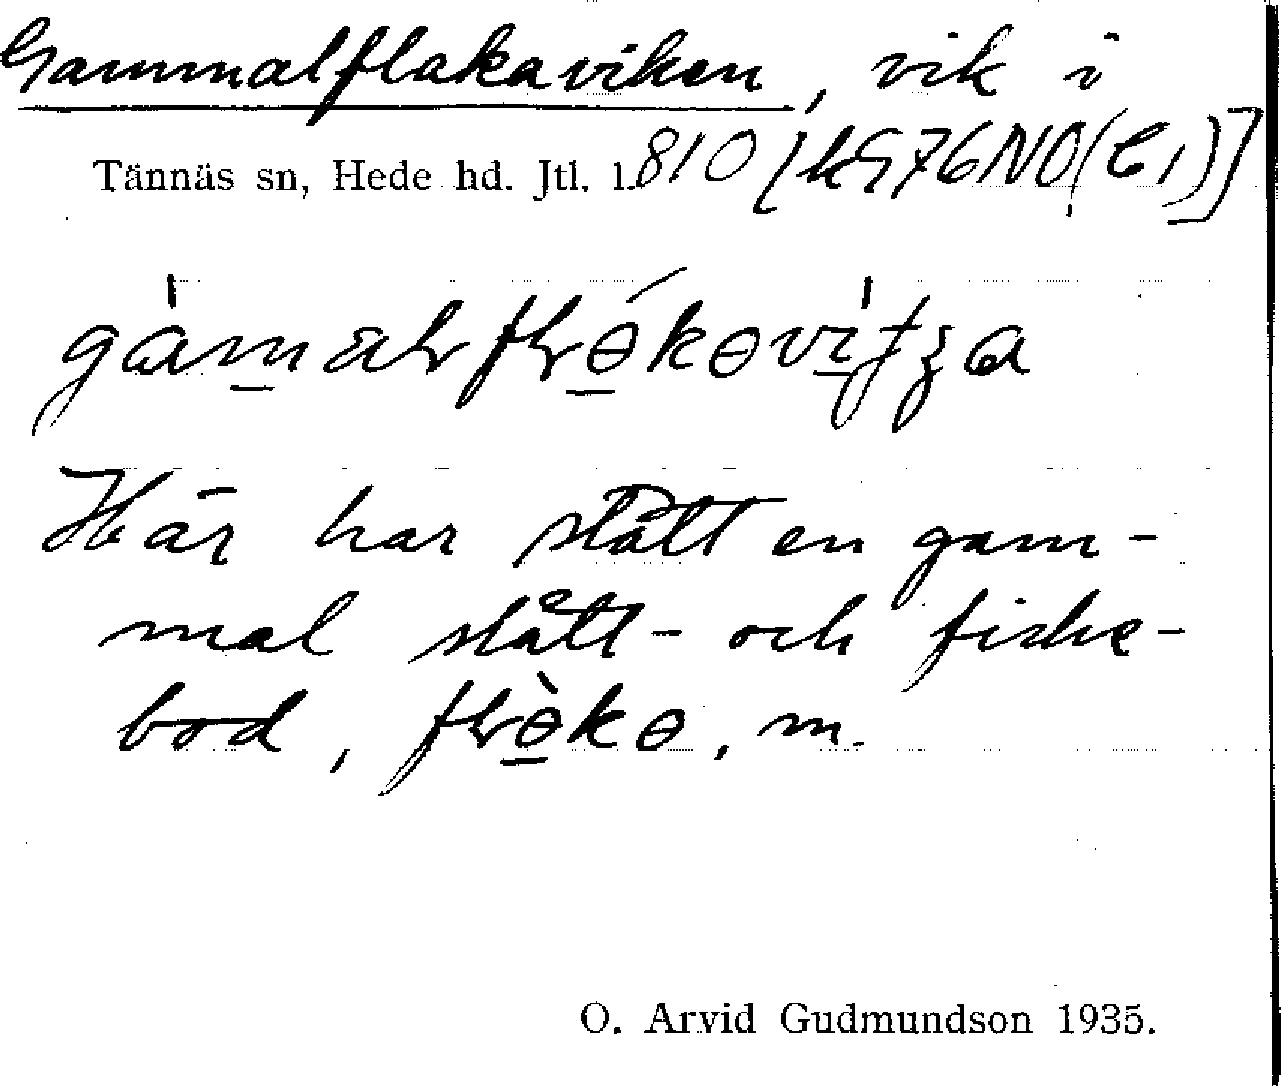 Gammalflakaviken, vik i
Tännäs sn, Hede hd. Jtl. l. 810 [kG76NO(C1)]
Här har stått en gam-
mal slått- och fiske-
bod, m.
O. Arvid Gudmundson 1935.